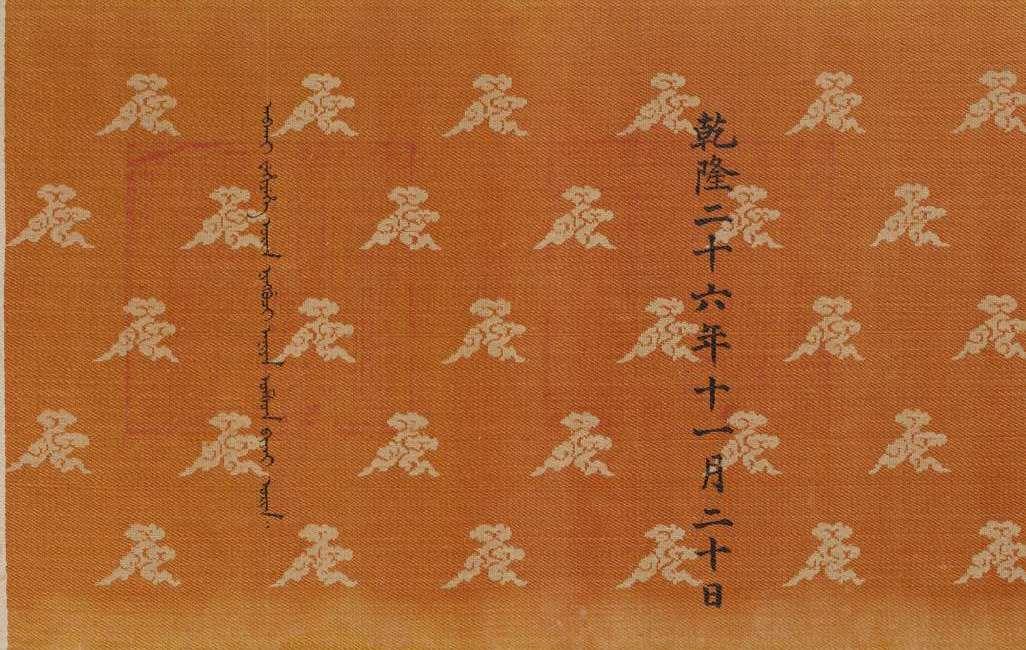 乾隆二十六年十一月二十日
ᠠᠪᡴᠠᡳ ᠸᡝᡥᡳᠶᡝᡥᡝ ᠣᡵᡳᠨ ᠨᡳᠩᡤᡠᠴᡳ ᠠᠨᡳᠶᠠ ᠣᠮᡧᠣᠨ ᠪᡳᠶᠠᡳ ᠣᡵᡳᠨ᠈